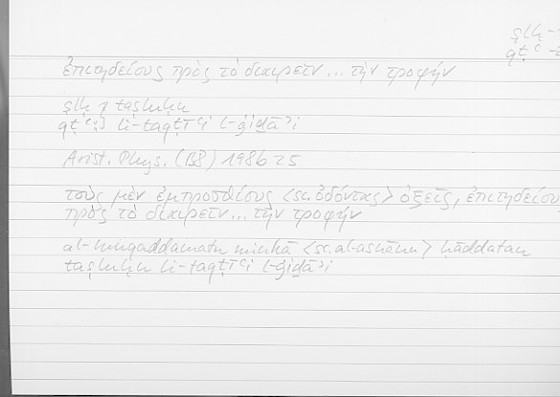 ṣlḥ
qṭʿ
ἐπιτηδείους πρὸς τὸ διαιρεῖν ... τὴν τροφήν
ṣlḥ taṣluḥu
qṭʿ li-taqṭīʿi l-ġiḏāʾi
Arist. Phys. (B8) 198b25
τοὺς μὲν ἐμπροσθίους <sc. ὀδόντας> ὀξεῖς, ἐπιτηδείου
πρὸς τὸ διαιρεῖν ... τὴν τροφήν
al-muqaddamatu minhā <sc. al-asnānu> ḥāddatan
taṣluḥu li-taqṭīʿi l-ġiḏāʾi